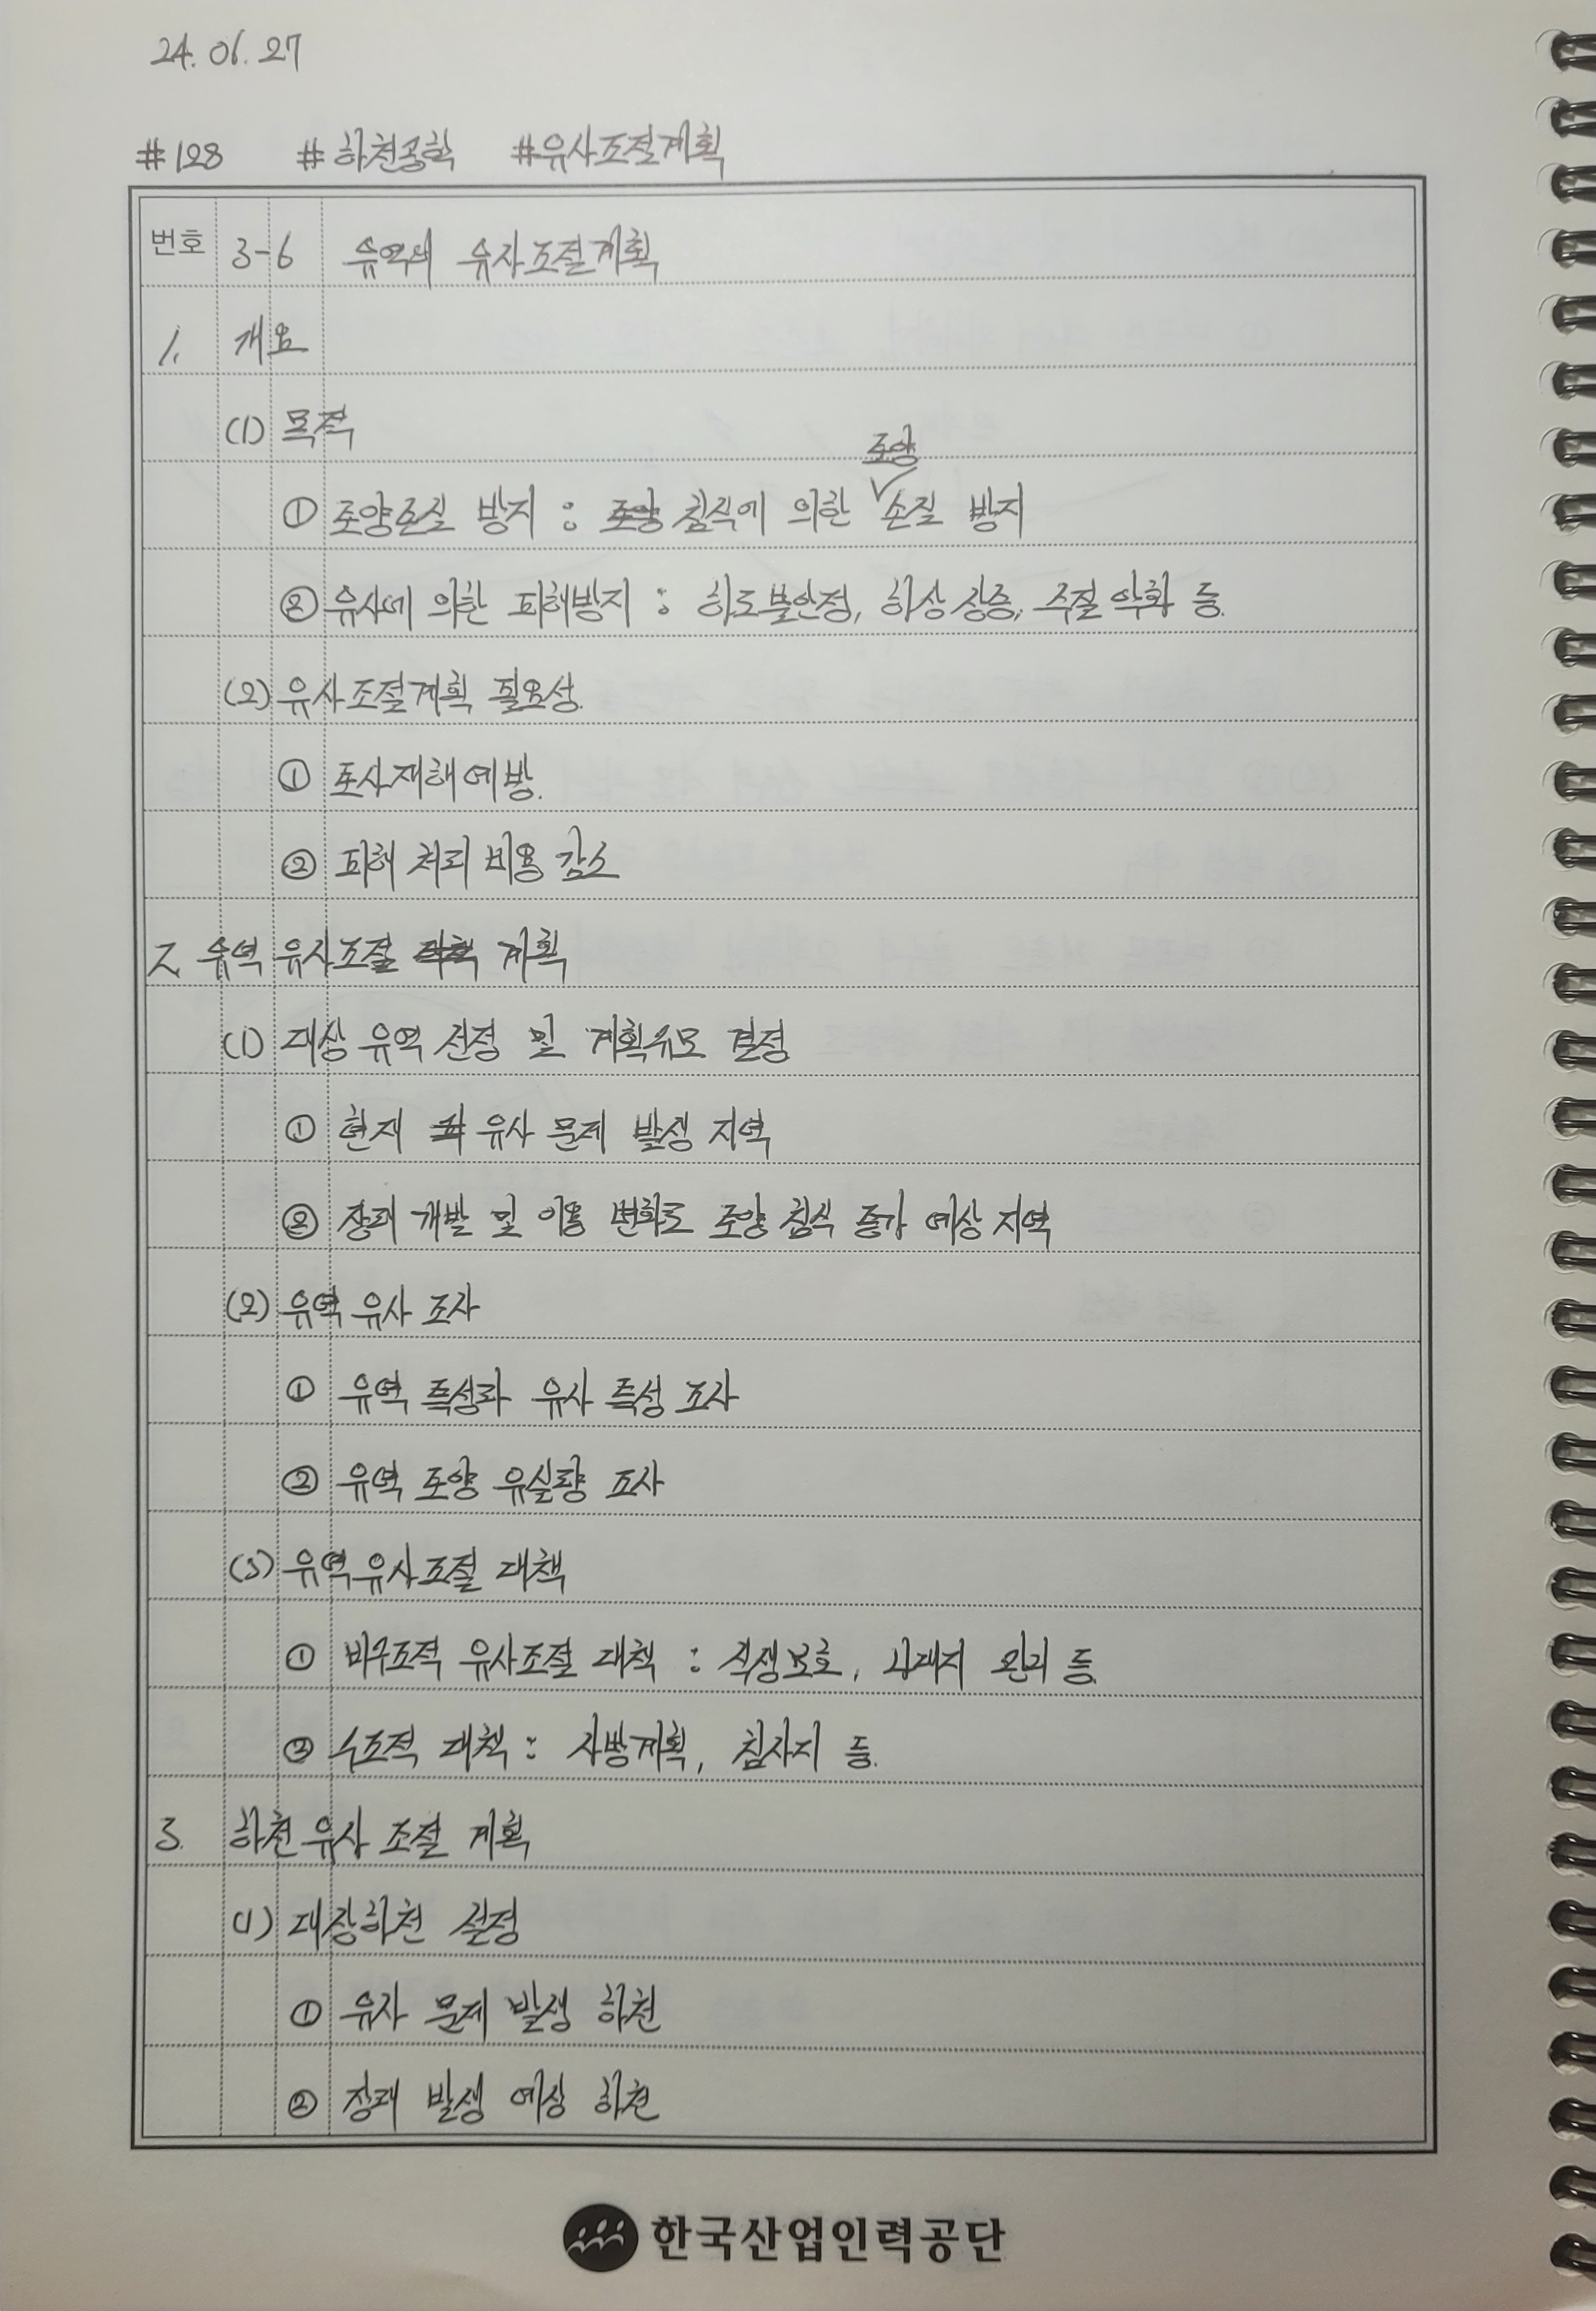 24. 06. 27
#128 #하천공학 #유사조절계획
번호 3-6 유역의 유사조절계획
1. 개요
(1) 목적
토양
① 토양손실 방지 : 침식에 의한 손실 방지
② 유사에 의한 피해방지 : 하도불안정, 하상상승, 수질 악화 등.
(2) 유사조절계획 필요성.
① 토사재해예방.
② 피해 처리 비용 감소
2. 유역 유사조절 계획
(1) 대상 유역 선정 및 계획규모 결정
① 현재 유사 문제 발생 지역
② 장래 개발 및 이용 변화로 토양 침식 증가 예상 지역
(2) 유역 유사 조사
① 유역 특성과 유사 특성 조사
② 유역 토양 유실량 조사
(3) 유역유사조절 대책
① 비구조적 유사조절 대책 : 식생보호, 관리 등.
② 구조적 대책 : 사방계획, 침사지 등.
3. 하천유사 조절 계획
(1) 대상하천 설정
① 유사 문제 발생 하천
② 장래 발생 예상 하천
한국산업인력공단